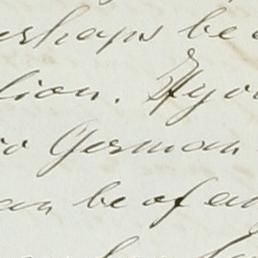 erhaps be
tion. If you
German
can be of a